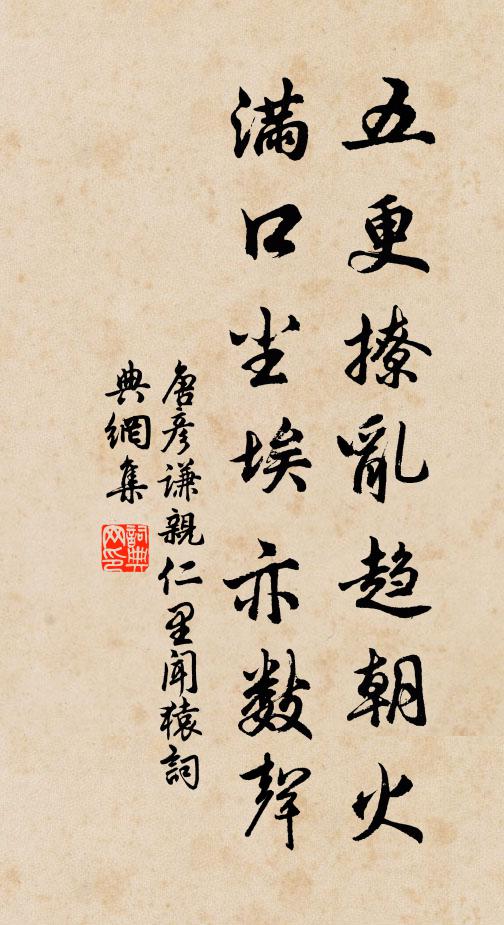 五更撩亂趋朝火
滿口尘埃亦數聲
唐彥谦親仁里闻猿詞
典網集
詞典
网印